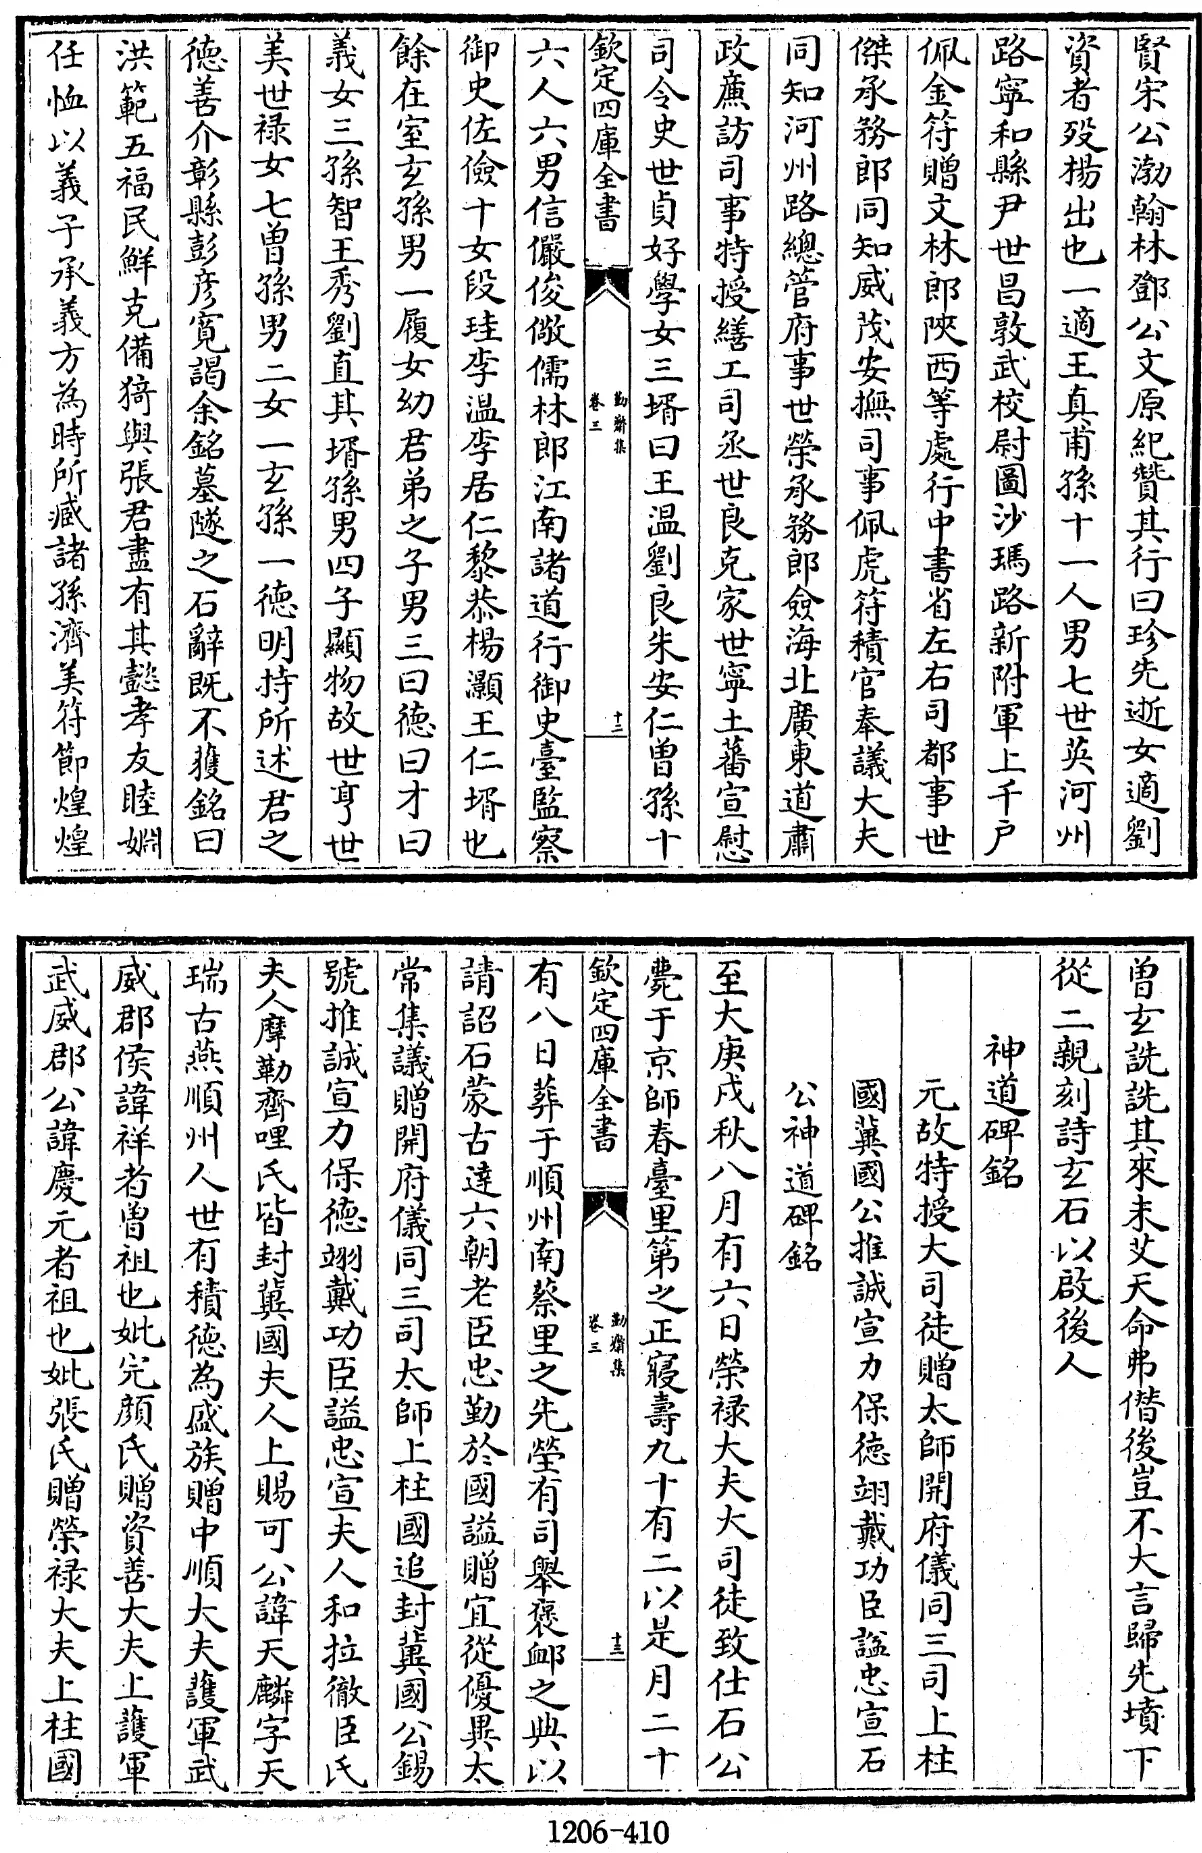 賢宋公渤翰林鄧公文原紀贊其行曰珍先逝女適劉
資者歿楊出也一適王真甫孫十一人男七世英河州
路寧和縣尹世昌敦武校尉圖沙瑪路新附軍上千戸
佩金符贈文林郎陜西等處行中書省左右司都事世
傑承務郎同知威茂安撫司事佩虎符積官奉議大夫
同知河州路總管府事世榮承務郎僉海北廣東道肅
政亷訪司事特授繕工司丞世良克家世寧土蕃宣慰
司令史世貞好學女三壻曰王温劉良朱安仁曽孫十
欽定四庫全書
勤齋集
卷三
十二
六人六男信儼俊儆儒林郎江南諸道行御史臺監察
御史佐儉十女段珪李温李居仁黎恭楊灝王仁壻也
餘在室玄孫男一履女幼君弟之子男三曰德曰才曰
義女三孫智王秀劉直其壻孫男四子顯物故世亨世
美世禄女七曽孫男二女一玄孫一德明持所述君之
德善介彰縣彭彦寛謁余銘墓隧之石辭既不獲銘曰
洪範五福民鮮克備猗與張君盡有其懿孝友睦婣
任恤以義子承義方為時所臧諸孫濟美符節煌煌
曽玄詵詵其來未艾天命弗僭後豈不大言歸先墳下
從二親刻詩玄石以啟後人
神道碑銘
元故特授大司徒贈太師開府儀同三司上柱
國冀國公推誠宣力保德翊戴功臣諡忠宣石
公神道碑銘
至大庚戌秋八月有六日榮禄大夫大司徒致仕石公
薨于京師春臺里第之正寢壽九十有二以是月二十
欽定四庫全書
勤齋集
卷三
十三
有八日葬于順州南蔡里之先塋有司舉褒卹之典以
請詔石蒙古逹六朝老臣忠勤於國諡贈宜從優異太
常集議贈開府儀同三司太師上柱國追封冀國公錫
號推誠宣力保德翊戴功臣諡忠宣夫人和拉徹臣氏
夫人摩勒齊哩氏皆封冀國夫人上賜可公諱天麟字天
瑞古燕順州人世有積德為盛族贈中順大夫護軍武
威郡侯諱祥者曽祖也妣完顔氏贈資善大夫上護軍
武威郡公諱慶元者祖也妣張氏贈榮禄大夫上柱國
1206-410